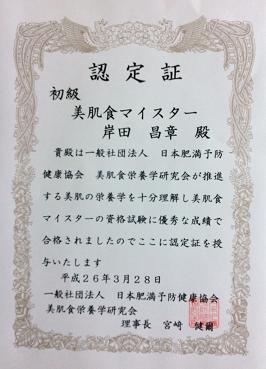 認定証
初級
美肌食マイスター
岸田 昌章 殿
貴殿は一般社団法人 日本肥満予防
健康協会 美肌食栄養学研究会が推進
する美肌の栄養学を十分理解し美肌食
マイスターの資格試験に優秀な成績で
合格されましたのでここに認定証を授
与いたします
平成26年3月28日
一般社団法人 日本肥満予防健康協会
美肌食栄養学研究会
理事長 宮崎 健爾